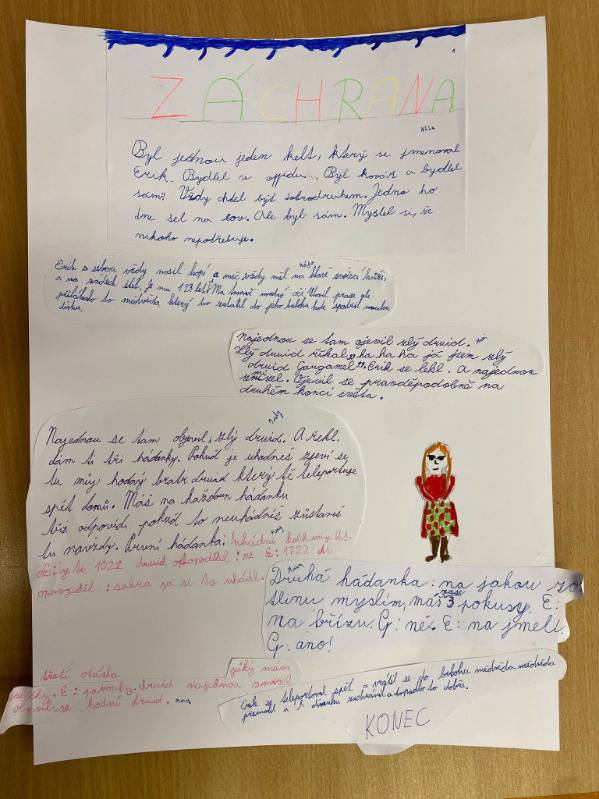 1
ZÁCHRANA
NELA
Byl jednou jeden kelt, který se jmenoval
Erik. Bydlel v oppidu. Byl kovář a bydlel
sám. Vždy chtěl být dobrodruhem. Jedno ho
dne šel na lov. Ale byl sám. Myslel si, že
nikoho nepotřebuje.
Erik s sebou vždy nosil kopí a meč vždy měl na hlavě
a na zádech štít. Je mu 123 let. Má modré oči. Uvnitř
přiběhlo to medvěda který ho zatáhl do jeho brlohu kde spatřil
dívku.
Najednou se tam objevil zlý druid.
Zlý druid říkal: ha ha ha já jsem zlý
druid Gargamel. Erik se lekl. A najednou
zmizel. Objevil se pravděpodobně na
druhém konci světa.
Najednou se tam objevil zlý druid. A řekl.
dám ti tři hádanky. Pokud je uhodneš zjeví se
tu můj hodný bratr druid který tě teleportuje
zpět domů. Máš na každou hádanku
tři odpovědi pokud to neuhádneš zůstaneš
tu navždy. První hádanka: uhádni kolik mi je let
E: je ti 1022 druid odpověděl: ne E: 1722 druid
odpověděl: sakra jak si to uhádl.
Druhá hádanka: na jakou ro
slinu myslím, máš 3 pokusy. E:
na břízu. G: né. E: na jmelí.
G: ano!
třetí otázka jaký mám
E: druid najednou zmizel
objevil se hodný druid.
Erik se teleportoval zpět a vrátil se do brlohu medvěda medvěda
přemohl a dívenku zachránil a dopadlo to dobře.
KONEC